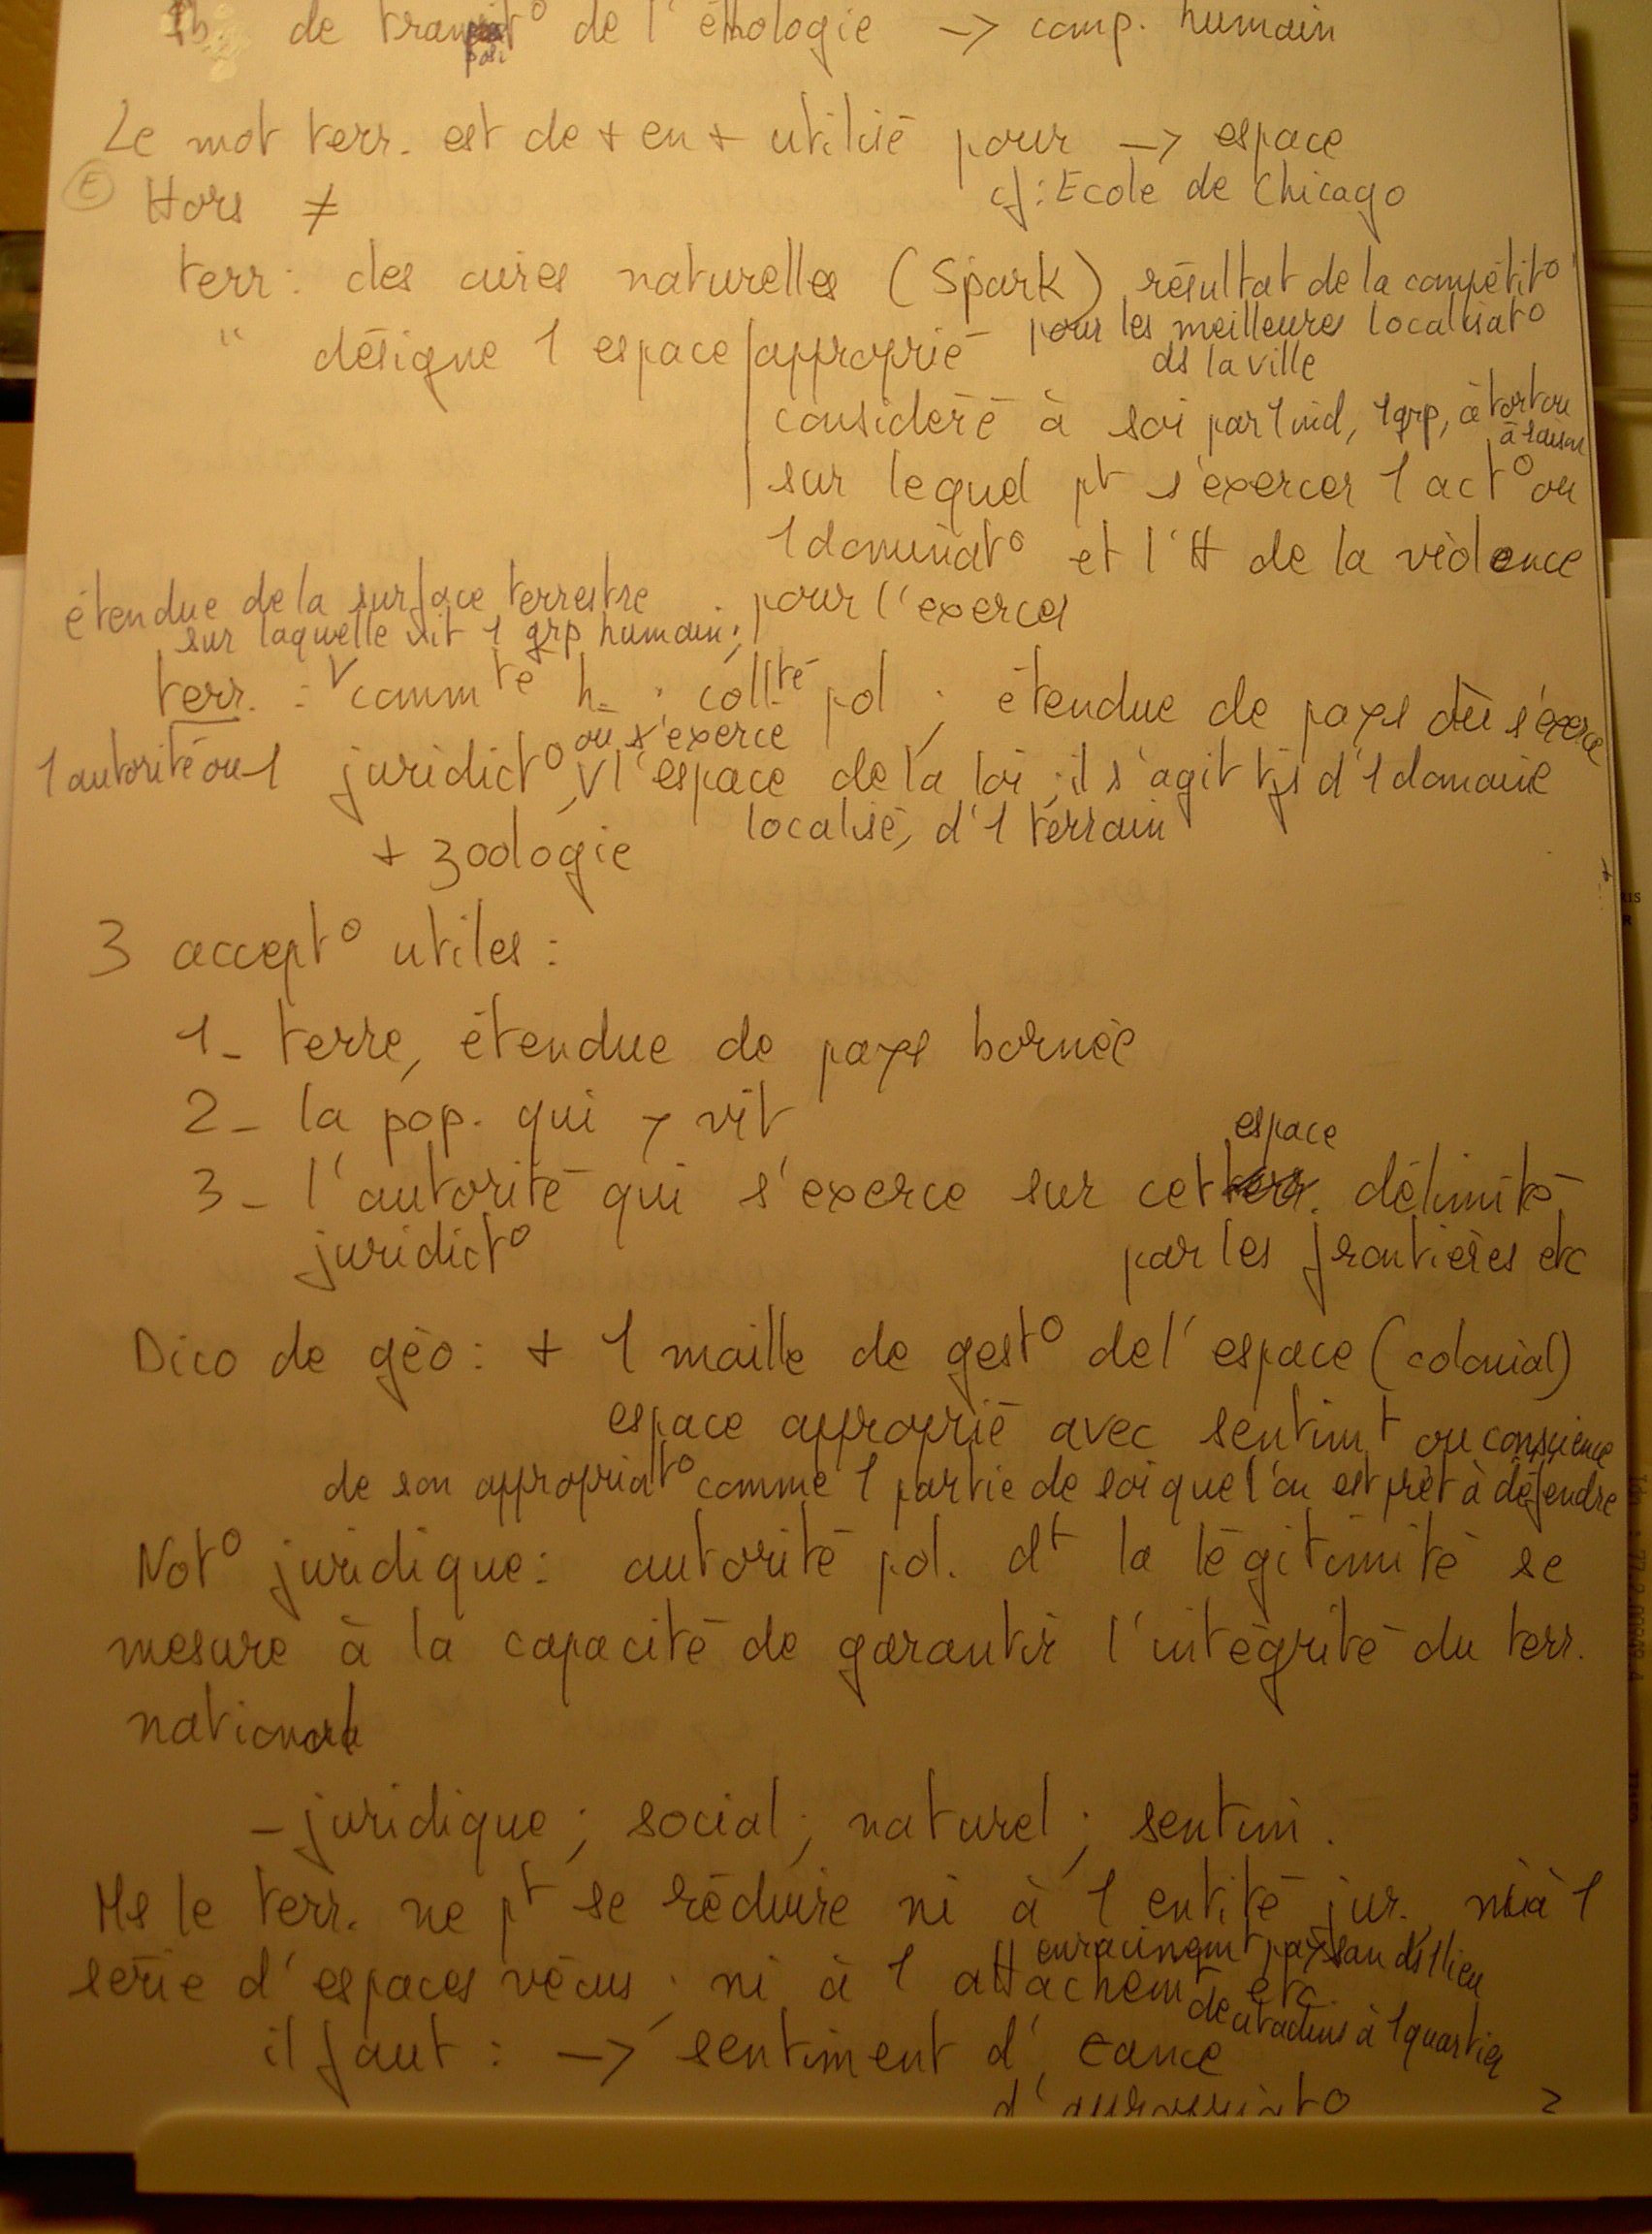 Pb de transposit° de l'éthologie -> comp. humain
Le mot terr. est de + en + utilisé pour -> espace
cf: Ecole de Chicago
E Hors ≠
terr: des aires naturelles (Spark) résultat de la compétit°
pour les meilleures localisat°
ds la ville
" désigne 1 espace approprié
considéré à soi par 1 ind, 1 grp, à tort ou
à raison
sur lequel pt s'exercer 1 act° ou
1 dominat° et l'H de la violence
pour l'exercer
étendue de la surface terrestre
sur laquelle vit 1 grp humain;
terr. : commté h. . collté pol ; étendue de pays où s'exerce
1 autorité ou 1 juridict°, où s'exerce l'espace de la loi ; il s'agit tjs d'1 domaine
localisé, d'1 terrain
+ zoologie
3 accept° utiles :
1- terre, étendue de pays bornée
2- la pop. qui y vit
3- l'autorité qui s'exerce sur cet espace délimité
juridict° par les frontières etc
Dico de géo: + 1 maille de gest° de l'espace (colonial)
espace approprié avec sentimt ou conscience
de son appropriat° comme 1 partie de soi que l'on est prêt à défendre
Not° juridique: autorité pol. dt la légitimité se
mesure à la capacité de garantir l'intégrité du terr.
national
- juridique ; social ; naturel ; sentim.
Ms le terr. ne pt se réduire ni à 1 entité jur. ni à 1
enracinemt paysan ds 1 lieu
série d'espaces vécus ; ni à 1 attachemt etc.
de citadins à 1 quartier
il faut : -> sentiment d'
d'appropriat°